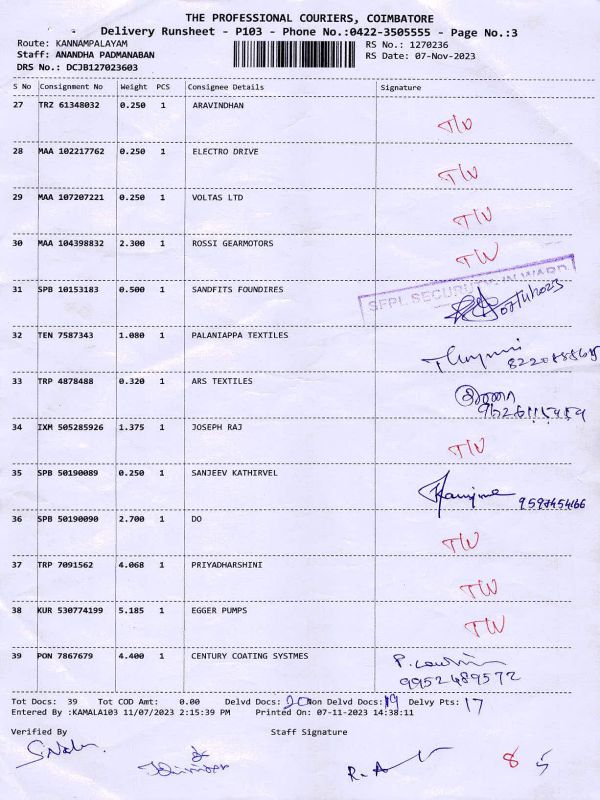 THE PROFESSIONAL COURIERS, COIMBATORE
Delivery Runsheet - P103 - Phone No.:0422-3505555 - Page No.:3
Route: KANNAMPALAYAM RS No.: 1270236
Staff: ANANDHA PADMANABAN RS Date: 07-Nov-2023
DRS No.: DCJB127023603
S No Consignment No Weight PCS Consignee Details Signature
27 TRZ 61348032 0.250 1 ARAVINDHAN
T/U
28 MAA 102217762 0.250 1 ELECTRO DRIVE
T/U
29 MAA 107207221 0.250 1 VOLTAS LTD
T/U
30 MAA 104398832 2.300 1 ROSSI GEARMOTORS
T/U
31 SPB 10153183 0.500 1 SANDFITS FOUNDIRES
SFPL SECURITY IN WARD
32 TEN 7587343 1.080 1 PALANIAPPA TEXTILES
33 TRP 4878488 0.320 1 ARS TEXTILES
34 IXM 505285926 1.375 1 JOSEPH RAJ
T/U
35 SPB 50190089 0.250 1 SANJEEV KATHIRVEL
36 SPB 50190090 2.700 1 DO
T/U
37 TRP 7091562 4.068 1 PRIYADHARSHINI
T/U
38 KUR 530774199 5.185 1 EGGER PUMPS
T/U
39 PON 7867679 4.400 1 CENTURY COATING SYSTMES
9952489572
Tot Docs: 39 Tot COD Amt: 0.00 Delvd Docs: 20 Non Delvd Docs: 19 Delvy Pts: 17
Entered By :KAMALA103 11/07/2023 2:15:39 PM Printed On: 07-11-2023 14:38:11
Verified By Staff Signature
R.A
8 5